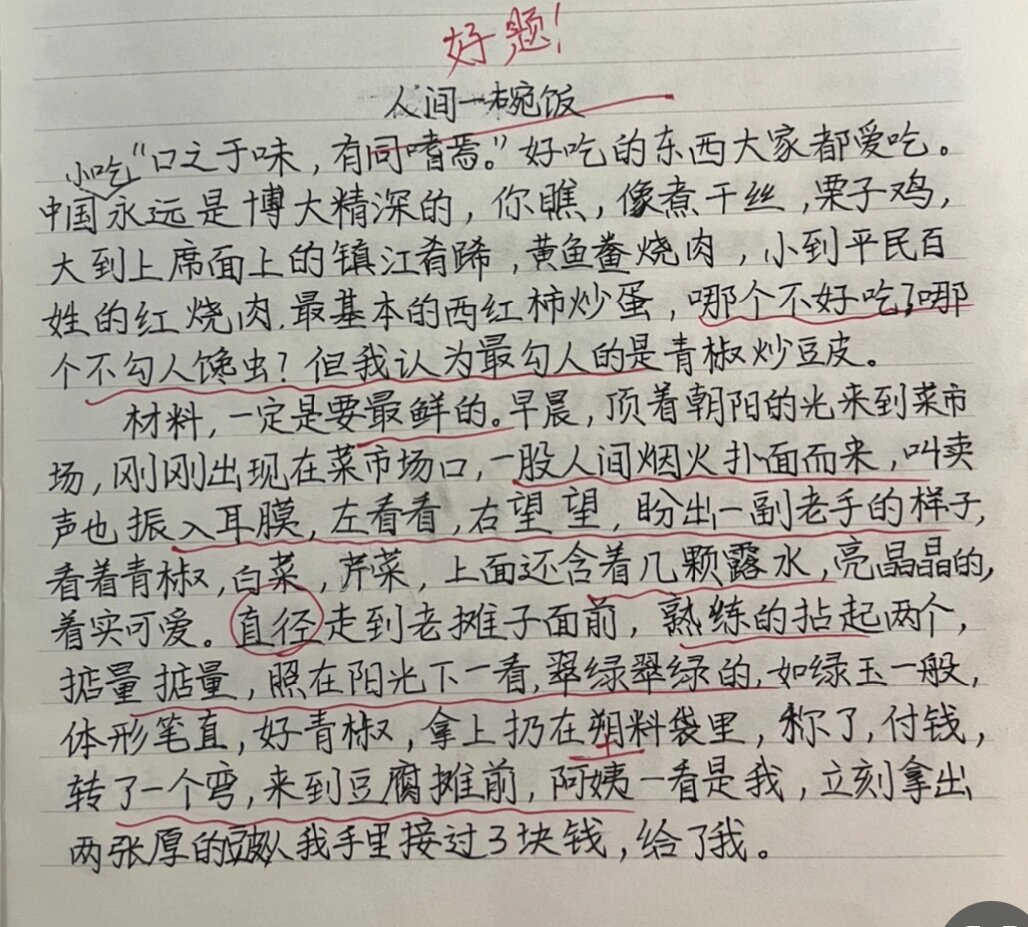 好题!
人间一碗饭
小吃
“口之于味，有同嗜焉。”好吃的东西大家都爱吃。
中国永远是博大精深的，你瞧，像煮干丝，栗子鸡，
大到上席面上的镇江肴蹄，黄鱼鲞烧肉，小到平民百
姓的红烧肉.最基本的西红柿炒蛋，哪个不好吃?哪
个不勾人馋虫?但我认为最勾人的是青椒炒豆皮。
材料，一定是要最鲜的。早晨，顶着朝阳的光来到菜市
场，刚刚出现在菜市场口，一股人间烟火扑面而来，叫卖
声也振入耳膜，左看看，右望望，盼出一副老手的样子，
看着青椒，白菜，芹菜，上面还含着几颗露水，亮晶晶的，
着实可爱。直径走到老摊子面前，熟练的拈起两个，
掂量掂量，照在阳光下一看，翠绿翠绿的，如绿玉一般，
体形笔直，好青椒，拿上扔在塑料袋里，称了，付钱，
转了一个弯，来到豆腐摊前，阿姨一看是我，立刻拿出
两张厚的豆皮从我手里接过3块钱，给了我。